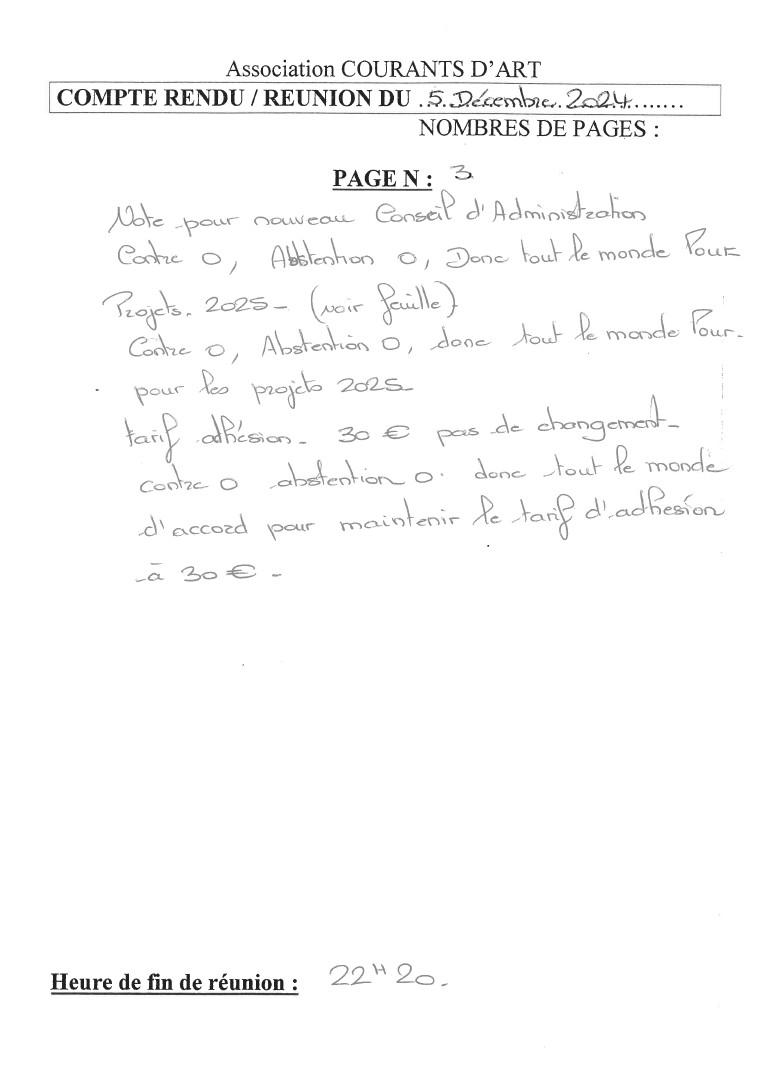 Association COURANTS D'ART
COMPTE RENDU / REUNION DU .5.Décembre.2024.......
NOMBRES DE PAGES :
PAGE N : 3
Vote pour nouveau Conseil d'Administration
Contre 0, Abstention 0, Donc tout le monde Pour
Projets. 2025 - (voir feuille)
Contre 0, Abstention 0, donc tout le monde Pour.
pour les projets 2025 -
tarif adhésion - 30 € pas de changement -
contre 0 abstention 0. donc tout le monde
d'accord pour maintenir le tarif d'adhesion
à 30 € -
Heure de fin de réunion : 22H20.